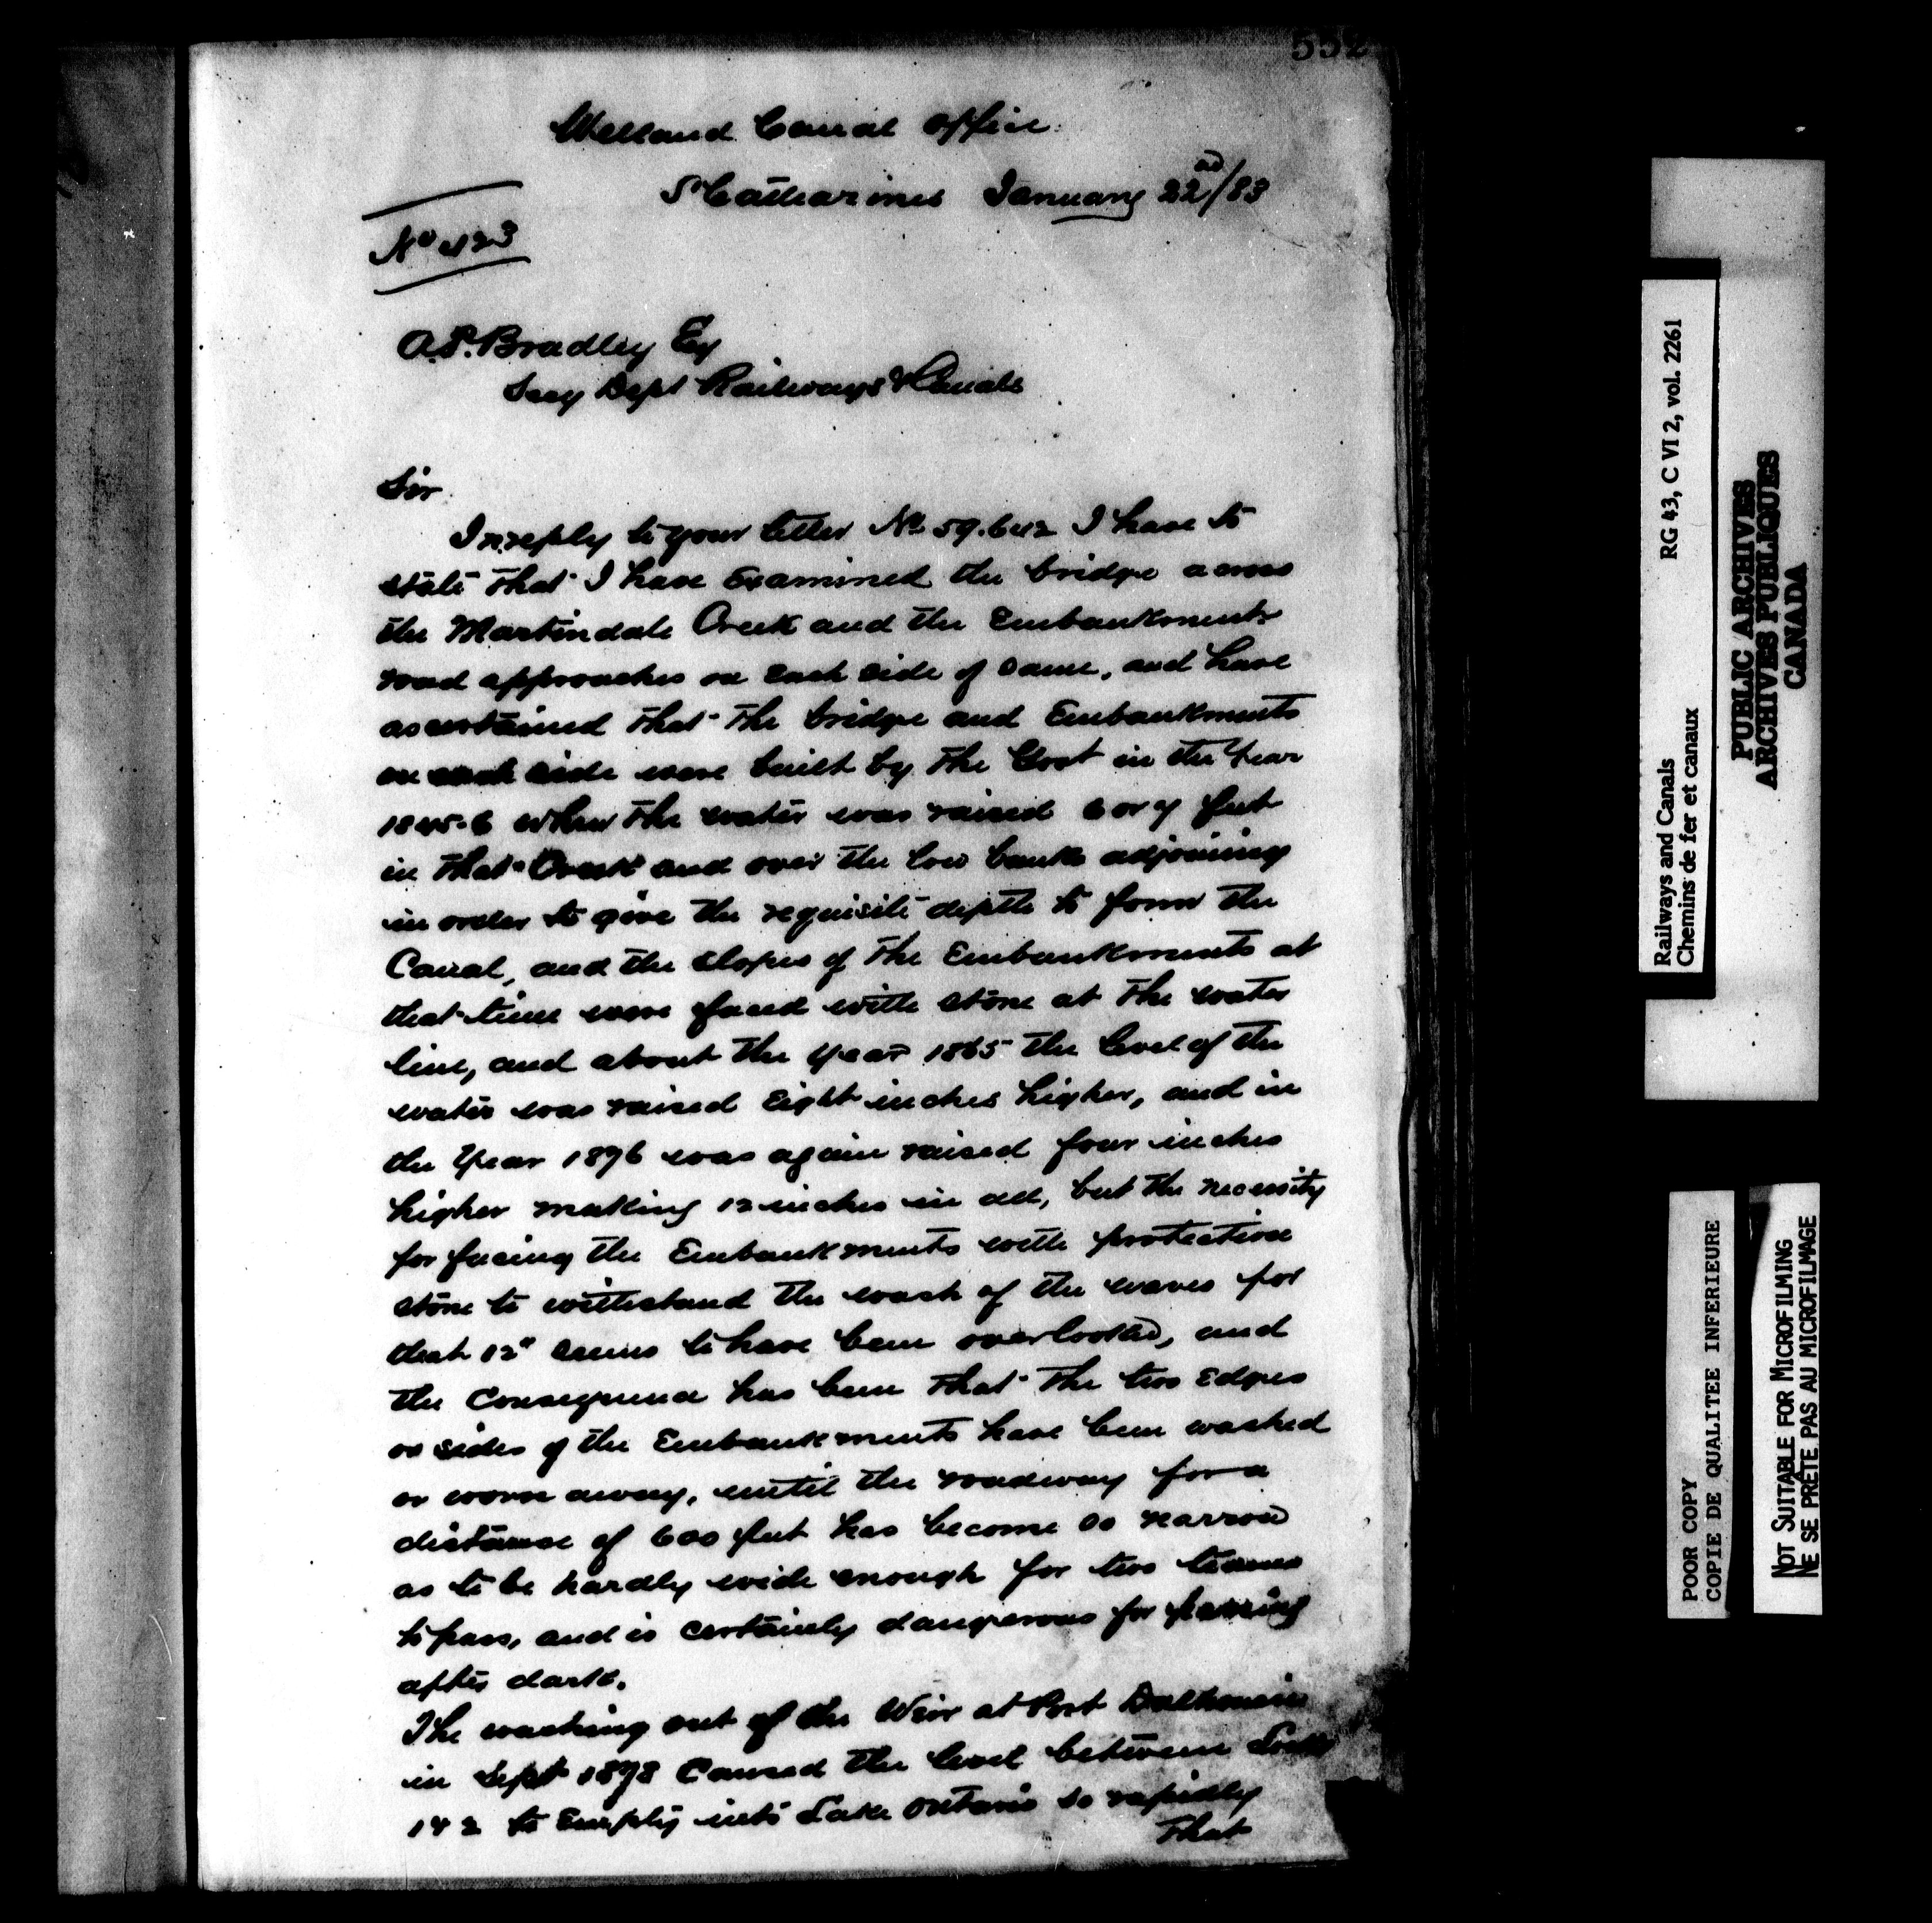 552
Welland Canal Office
St Catharines January 22nd/83
No 423
A.P. Bradley Eq
Secy Dept Railways & Canals
Sir
In reply to your letter No 59.642 I have to
state that I have Examined the bridge across
the Martindale Creek and the Embankments
road approaches on each side of same, and have
ascertained that the bridge and Embankments
on each side were built by the Govt in the Year
1845-6 when the water was raised 6 or 7 feet
in that Creek and over the low banks adjoining
in order to give the requisite depth to form the
Canal, and the slopes of the Embankments at
that time were faced with stone at the water
line, and about the Year 1865 the level of the
water was raised Eight inches higher, and in
the Year 1876 was again raised four inches
higher making 12 inches in all, but the necessity
for facing the Embankments with protection
stone to withstand the wash of the waves for
that 12" seems to have been overlooked, and
the Consequence has been that the two Edges
or sides of the Embankments have been washed
or worn away, until the roadway for a
distance of 600 feet has become so narrow
as to be hardly wide enough for two teams
to pass, and is certainly dangerous for passing
after dark.
The washing out of the Weir at Port Dalhousie
in Sept 1878 Caused the level between Locks
1 & 2 to Empty into Lake Ontario so rapidly
that
Railways and Canals RG 43, C VI 2, vol. 2261
Chemins de fer et canaux
PUBLIC ARCHIVES
ARCHIVES PUBLIQUES
CANADA
POOR COPY
COPIE DE QUALITEE INFERIEURE
NOT SUITABLE FOR MICROFILMING
NE SE PRÊTE PAS AU MICROFILMAGE